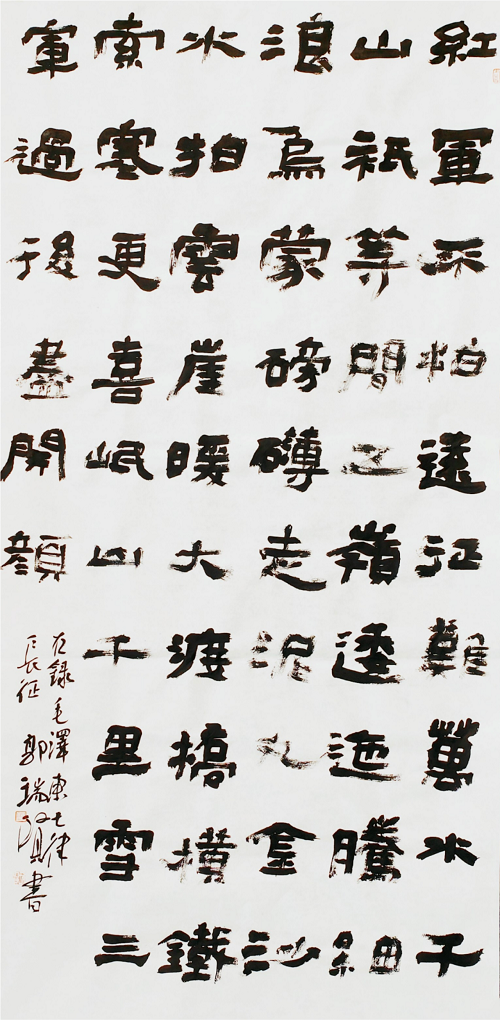 紅軍不怕遠征難萬水千
山祇等間五嶺逶迤騰細
浪烏蒙磅礴走泥丸金沙
水拍雲崖暖大渡橋橫鐵
索寒更喜岷山千里雪三
軍過後盡開顏
右錄毛澤東七律
長征 郭瑞書